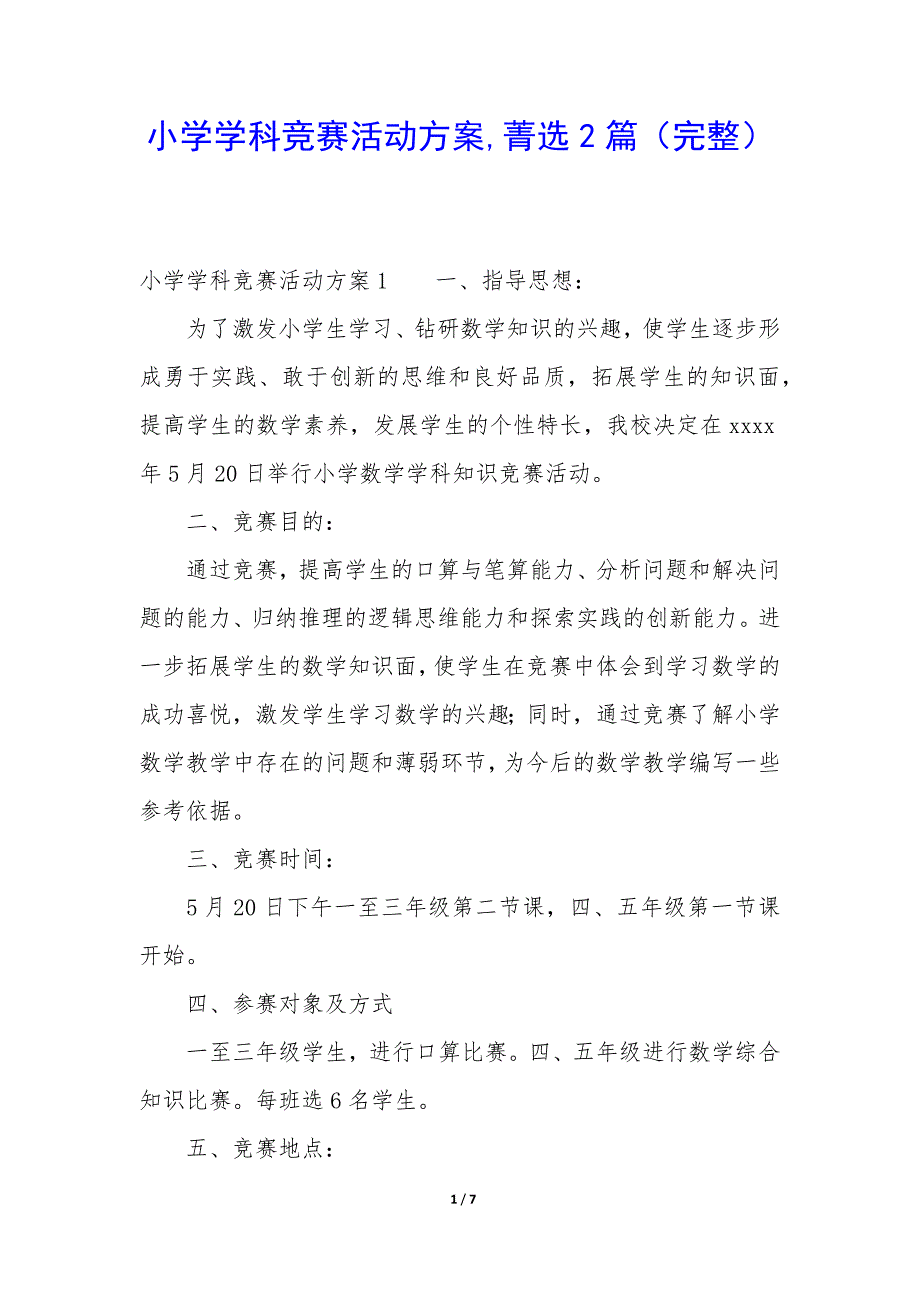 小学学科竞赛活动方案,菁选2篇（完整）
小学学科竞赛活动方案1　　一、指导思想：
为了激发小学生学习、钻研数学知识的兴趣，使学生逐步形
成勇于实践、敢于创新的思维和良好品质，拓展学生的知识面，
提高学生的数学素养，发展学生的个性特长，我校决定在xxxx
年5月20日举行小学数学学科知识竞赛活动。
二、竞赛目的：
通过竞赛，提高学生的口算与笔算能力、分析问题和解决问
题的能力、归纳推理的逻辑思维能力和探索实践的创新能力。进
一步拓展学生的数学知识面，使学生在竞赛中体会到学习数学的
成功喜悦，激发学生学习数学的兴趣；同时，通过竞赛了解小学
数学教学中存在的问题和薄弱环节，为今后的数学教学编写一些
参考依据。
三、竞赛时间：
5月20日下午一至三年级第二节课，四、五年级第一节课
开始。
四、参赛对象及方式
一至三年级学生，进行口算比赛。四、五年级进行数学综合
知识比赛。每班选6名学生。
五、竞赛地点：
1 / 7